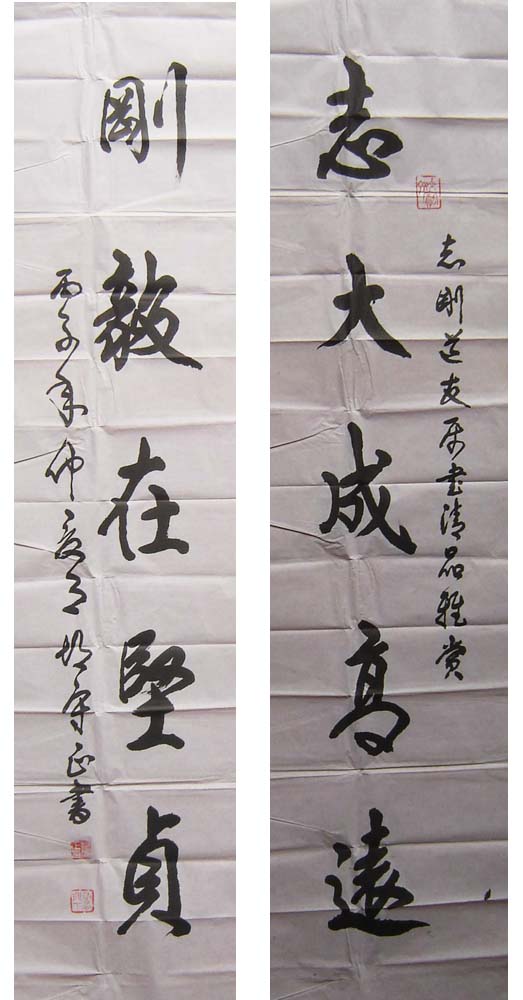 志剛道友属书清品雅赏
志大成高遠
剛毅在堅貞
丙子年仲夏月守正書